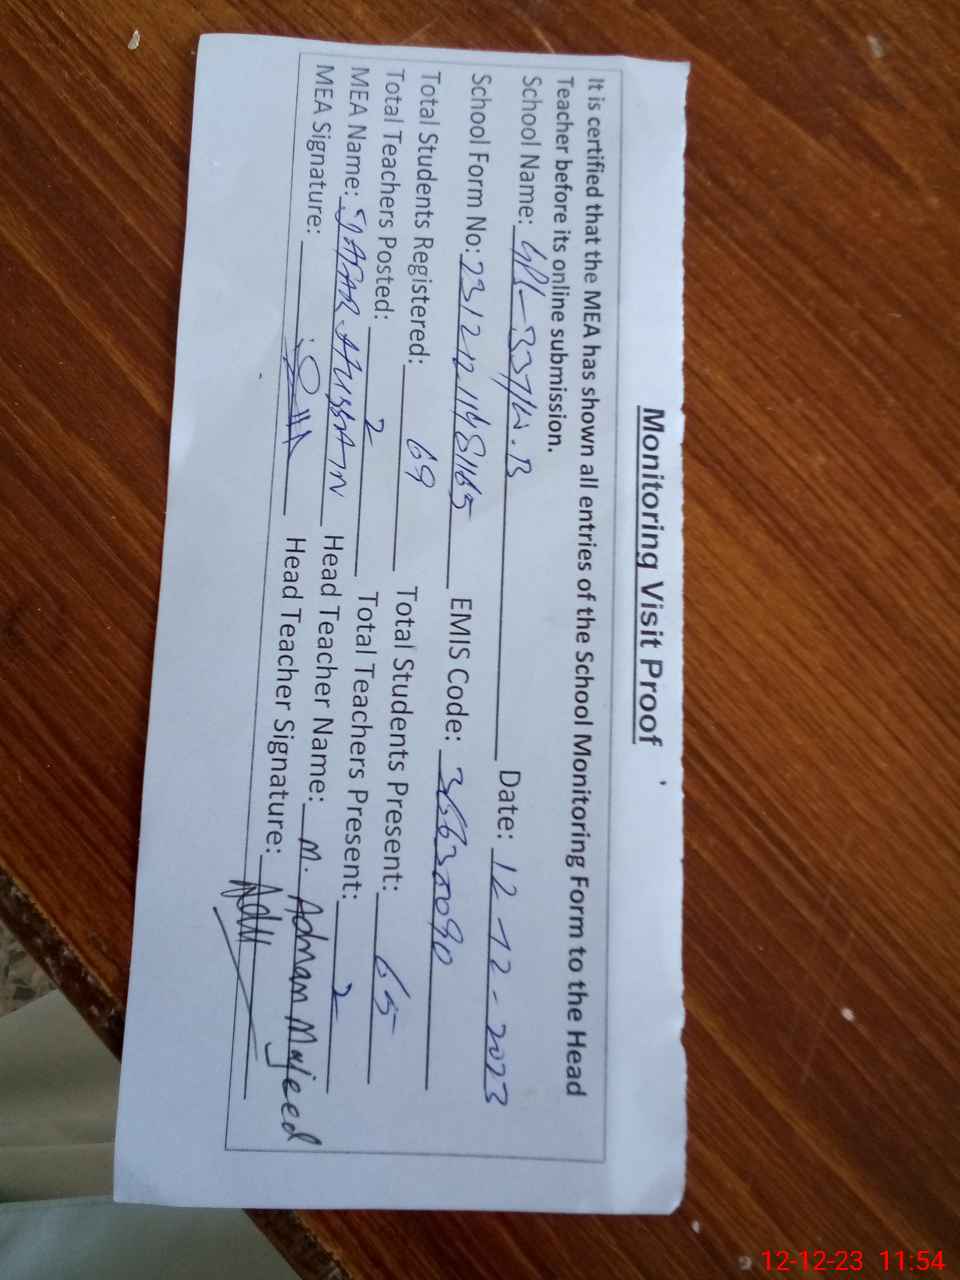 Monitoring Visit Proof
It is certified that the MEA has shown all entries of the School Monitoring Form to the Head
Teacher before its online submission.
School Name: 337/W.B Date: 12-12-2023
School Form No: EMIS Code:
Total Students Registered: 69 Total Students Present: 65
Total Teachers Posted: 2 Total Teachers Present: 2
MEA Name: Head Teacher Name: M. Adnan Majeed
MEA Signature: Head Teacher Signature:
12-12-23 11:54